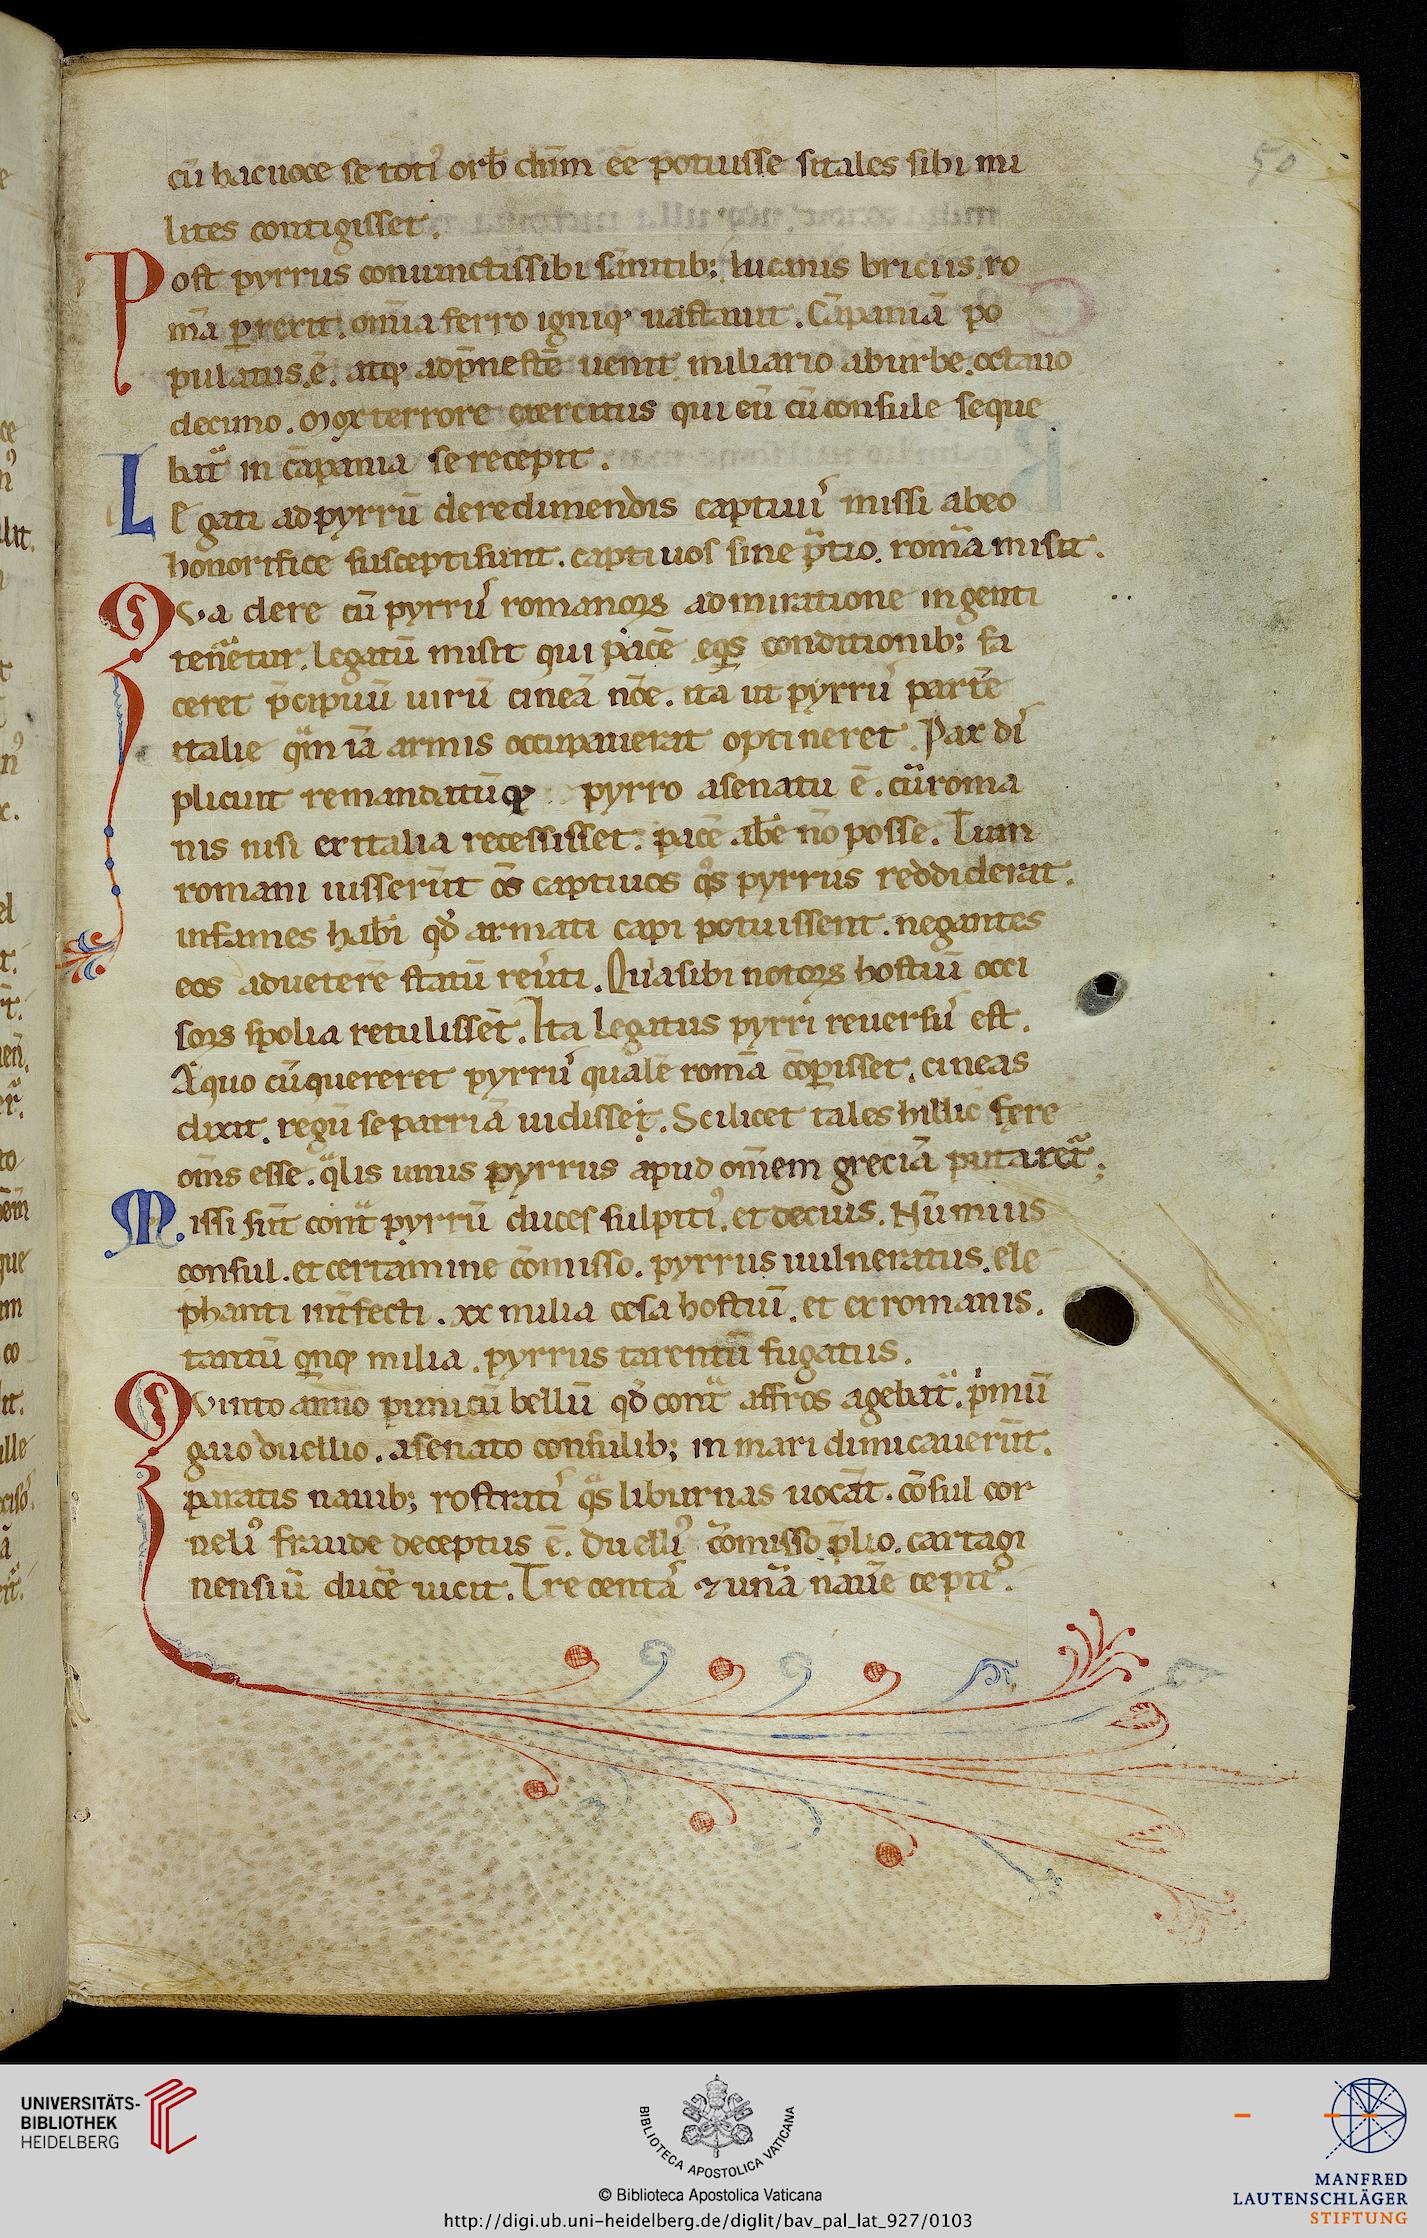 50
cū hac uoce se toti᾽ orb̄ dn̄m ēe potuisse si tales sibi mi
lites contigisset.
Post pyrrus coniunctis sibi sānitib; lucanis briciis ro
mā p̄rexit. om̄ia ferro igniq; uastauit. Cāpaniā po
pulatus. ē. atq; ad p̄nestē uenit miliario ab urbe. octauo
decimo. Mox terrore exercitus qui eū cū consule seque
bat᷑ in cāpania se recepit.
LEgati ad pyrrū de redimendis captiuis missi ab eo
honorifice suscepti sunt. captiuos sine p̄tio. romā misit.
Qua de re cū pyrrus romanoꝝ admiratione ingenti
tenēetur. legatū misit qui pacē eq̄s conditionib; fa
ceret p̄cipuū uirū cineā nōe. ita ut pyrrus partē
italie q̄m iā armis occupauerat optineret. Pax dis
plicuit remandatūq; pyrro a senatu ē. cū roma
nis nisi ex italia recessisset. pacē abē nō posse. Tum
romani iusserūt os̄ captiuos qͦs pyrrus reddiderat.
infames hab̄i qd̄ armati capi potuissent. negantes
eos ad ueterē statū reūti. Quā si bi notoꝝ hostiū occi
soꝝ spolia retulissēt. Ita legatus pyrri reuersus est.
A quo cū quereret pyrrus qualē romā cōp̄isset. cineas
dixit. regū se patriā uidisset. Scilicet tales hillic fere
om̄s esse. q̄lis unus pyrrus apud om̄em greciā putaret᷑;
Missi sūt cont᷑ pyrrū duces sulpiti᾽. et decius. Nūmius
consul. et certamine cōmisso. pyrrus uulneratus. ele
phanti int̄fecti. xx milia cesa hostiū. et ex romanis.
tantū qͥnq; milia. pyrrus tarentū fugatus.
Quinto anno punicū bellū qd̄ cont᷑ affros agebat᷑. p̄mū
guo duellio. asenato consulib; in mari dimicauerūt.
paratis nauib; rostratis q̄s liburnas uocāt. cōsul cor
neli᾽ fraude deceptus ē. Duelli᾽ cōmisso p̄lio. cartagi
nensiū ducē uicit. Tre centas ⁊ unā nauē cepit.
UNIVERSITÄTS-
BIBLIOTHEK
HEIDELBERG
BIBLIOTECA APOSTOLICA VATICANA
© Biblioteca Apostolica Vaticana
http://digi.ub.uni-heidelberg.de/diglit/bav_pal_lat_927/0103
MANFRED
LAUTENSCHLÄGER
STIFTUNG